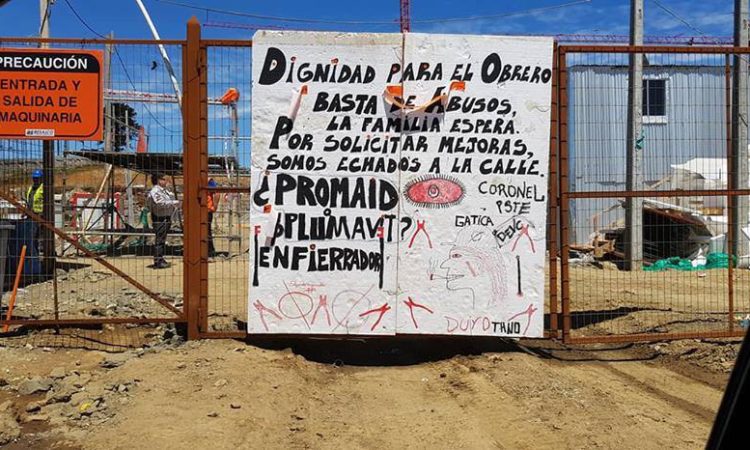 PRECAUCIÓN
ENTRADA Y
SALIDA DE
MAQUINARIA
DIGNIDAD PARA EL OBRERO
BASTA DE ABUSOS,
LA FAMILIA ESPERA.
POR SOLICITAR MEJORAS,
SOMOS ECHADOS A LA CALLE.
¿PROMAID
¿PLUMAVIT?
ENFIERRADOR
CORONEL
PSTE
GATICA
DUYO TANO